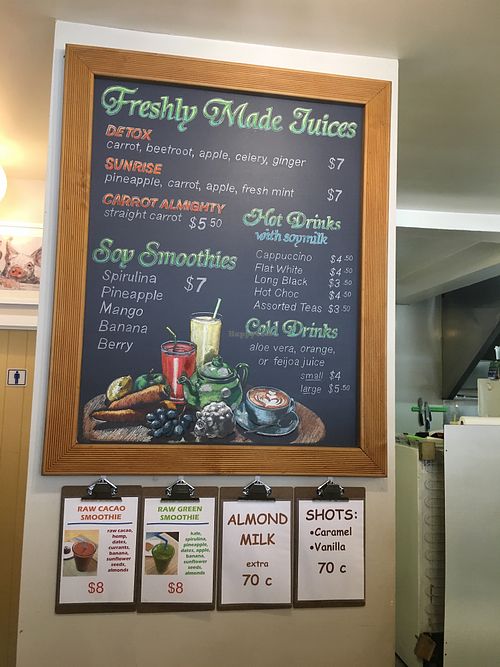 Freshly Made Juices
DETOX
carrot, beetroot, apple, celery, ginger $7
SUNRISE
pineapple, carrot, apple, fresh mint $7
CARROT ALMIGHTY
straight carrot $5.50
Hot Drinks
with soymilk
Cappuccino $4.50
Flat White $4.50
Long Black $3.50
Hot Choc $4.50
Assorted Teas $3.50
Soy Smoothies
$7
Spirulina
Pineapple
Mango
Banana
Berry
Cold Drinks
aloe vera, orange,
or feijoa juice
small $4
large $5.50
RAW CACAO
SMOOTHIE
raw cacao,
hemp,
dates,
currants,
banana,
sunflower
seeds,
almonds
$8
RAW GREEN
SMOOTHIE
kale,
spirulina,
pineapple,
dates, apple,
banana,
sunflower
seeds,
almonds
$8
ALMOND
MILK
extra
70 c
SHOTS:
•Caramel
•Vanilla
70 c